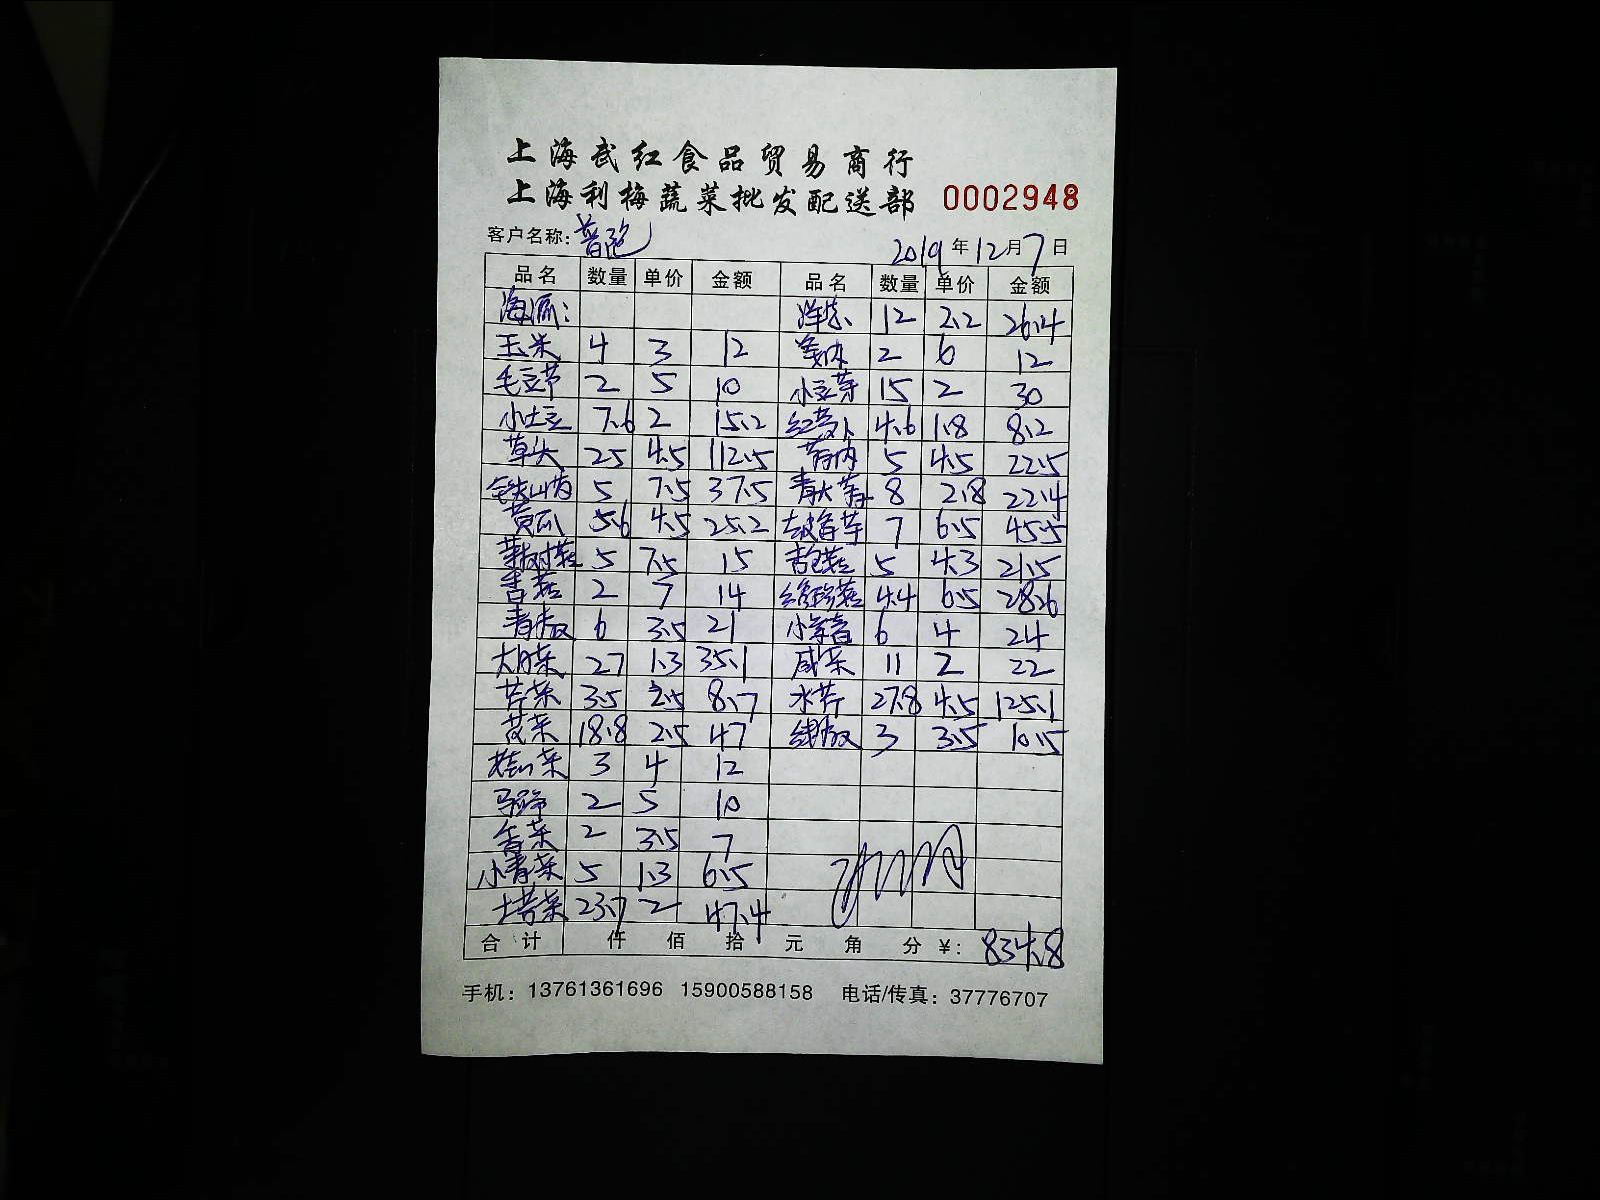 上海武红食品贸易商行
上海利梅蔬菜批发配送部 0002948
客户名称: 2019年12月7日
品名 数量 单价 金额 品名 数量 单价 金额
海派: 洋葱 12 2.2 26.4
玉米 4 3 12 2 6 12
毛豆节 2 5 10 小豆芽 15 2 30
小土豆 7.6 2 15.2 红萝卜 4.6 1.8 8.2
草头 25 4.5 112.5 5 4.5 22.5
铁山药 5 7.5 37.5 8 2.8 22.4
黄瓜 5.6 4.5 25.2 7 6.5 45.5
5 7.5 15 杏包菇 5 4.3 21.5
香菇 2 7 14 4.4 6.5 28.6
青椒 6 3.5 21 6 4 24
大白菜 27 1.3 35.1 咸菜 11 2 22
芹菜 3.5 2.5 8.7 水芹 27.8 4.5 125.1
18.8 2.5 47 线椒 3 3.5 10.5
3 4 12
2 5 10
香菜 2 3.5 7
小青菜 5 1.3 6.5
23.7 2 47.4
合计 仟 佰 拾 元 角 分 ¥: 834.8
手机: 13761361696 15900588158 电话/传真: 37776707